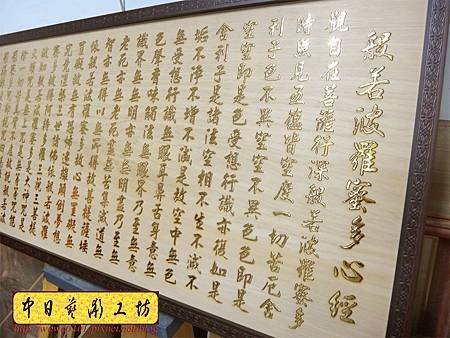 般若波羅蜜多心經
觀自在菩薩行深般若波羅蜜多
時照見五蘊皆空度一切苦厄舍
利子色不異空空不異色色即是
空空即是色受想行識亦復如是
舍利子是諸法空相不生不滅不
垢不淨不增不減是故空中無色
無受想行識無眼耳鼻舌身意無
色聲香味觸法無眼界乃至無意
識界無無明亦無無明盡乃至無
老死亦無老死盡無苦集滅道無
智亦無得以無所得故菩提薩埵
依般若波羅蜜多故心無罣礙無
罣礙故無有恐怖遠離顛倒夢想
究竟涅槃三世諸佛依般若波羅
蜜多故得阿耨多羅三藐三菩提
故知般若波羅蜜多是大神咒是
大明咒是無上咒是無等等咒能
除一切苦
中日藝彫工坊